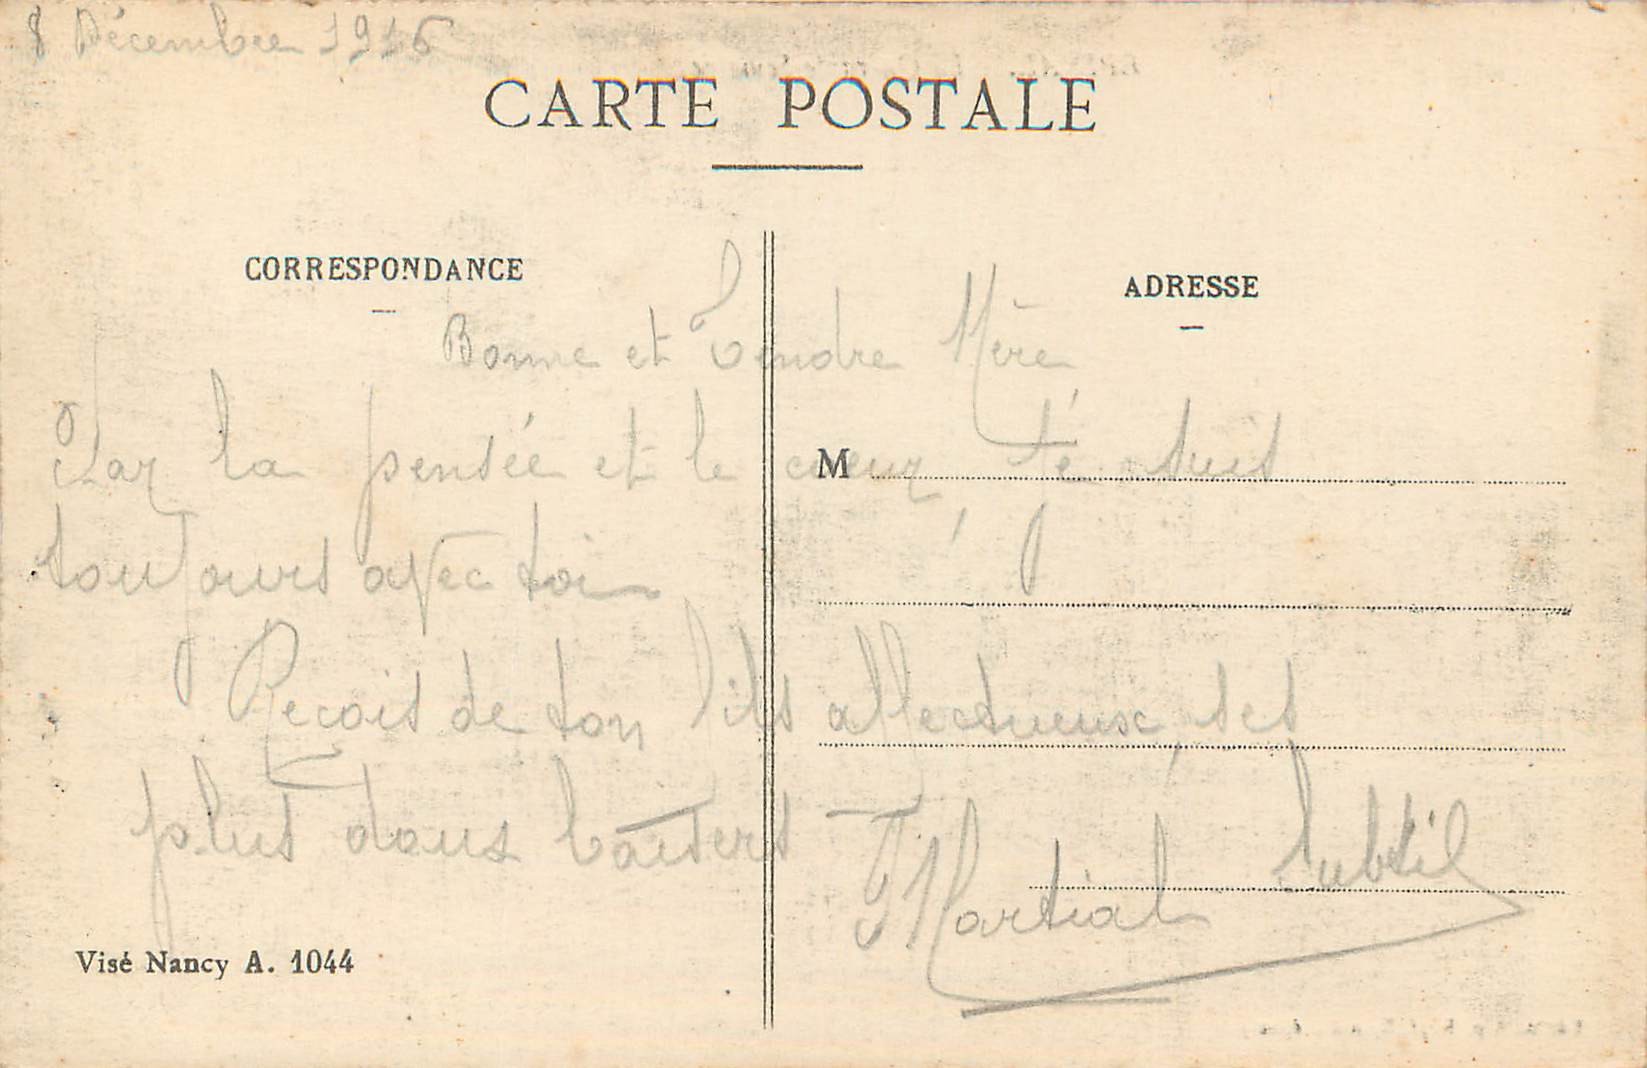 8 Décembre 1916
CARTE POSTALE
CORRESPONDANCE
ADRESSE
Bonne et Tendre Mère
Par la pensée et le cœur, Je suis
M
toujours avec toi
Reçois de ton fils affectueux, ses
plus doux baisers
Martial Subtil
Visé Nancy A. 1044